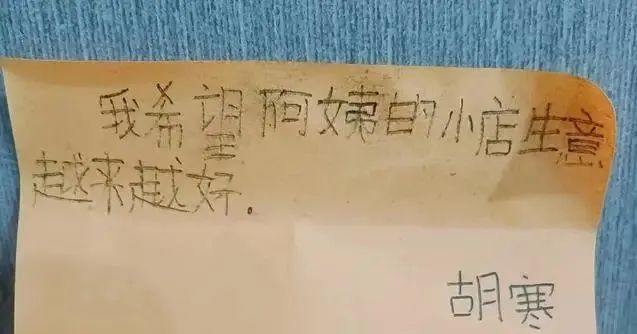 我希望阿姨的小店生意
越来越好.
胡寒